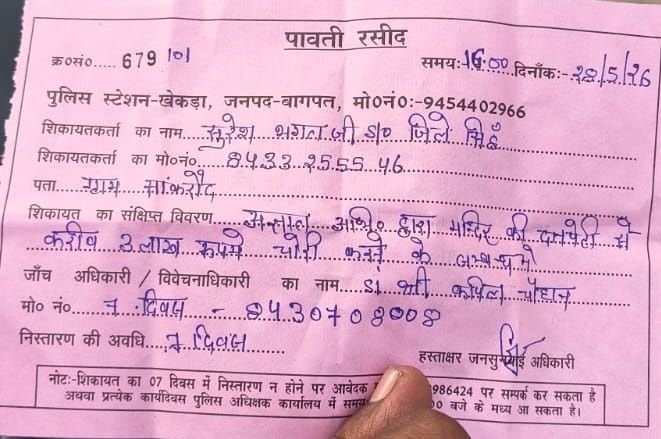 पावती रसीद
क्र०सं०..... 679 101 समयः-16:00 दिनाँकः- 28/5/26
पुलिस स्टेशन-खेकड़ा, जनपद-बागपत, मो०नं०:-9454402966
शिकायतकर्ता का नाम सुरेश भगत जी S/o जिले सिंह
शिकायतकर्ता का मो०नं० 8433 2555 46
पता ग्राम सांकरौद
शिकायत का संक्षिप्त विवरण अज्ञात अभि० द्वारा मन्दिर की दानपेटी से
करीब 3 लाख रूपये चोरी करने के सम्बन्ध में
जाँच अधिकारी / विवेचनाधिकारी का नाम: श्री कपिल चौहान
मो० नं० 7 दिवस - 8430708008
निस्तारण की अवधि 7 दिवस
हस्ताक्षर जनसुनवाई अधिकारी
नोटः-शिकायत का 07 दिवस में निस्तारण न होने पर आवेदक 986424 पर सम्पर्क कर सकता है
अथवा प्रत्येक कार्यदिवस पुलिस अधिक्षक कार्यालय में समय 00 बजे के मध्य आ सकता है।